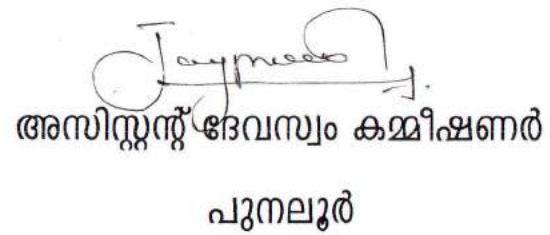 അസിസ്റ്റന്റ് ദേവസ്വം കമ്മീഷണർ
പുനലൂർ